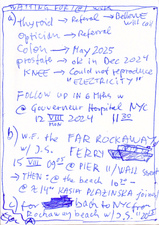 WAITING FOR/LET with
a) Thyroid → Referral → Bellevue
will call
Optician → Referral
Colon → May 2025
prostate → ok in Dec 2024
KNEE → Could not reproduce
"ELECTRICITY"
FOLLOW UP IN 6 Mths w
@ Gouverneur Hospital NYC
12 VIII 2024 11 20
b) W.F. the FAR ROCKAWAY
w/ J.S. FERRY
15 VIII @ PIER 11/WALL Street
→ THEN: @ the beach
@ KASIA PLAZINSKA joins
c) back to NYC from
Rockaway beach w/ J.S.